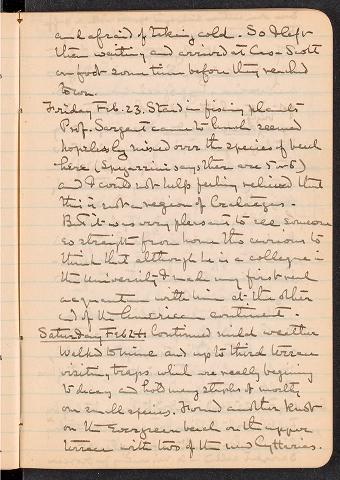 and afraid of taking cold. So I left
them waiting and arrived at Casa Scott
on foot some time before they reached
town.
Friday Feb. 23. Staid in fixing plants
Prof. Sargent came to lunch seemed
hopelessly mixed over the species of beech
here (Spegazzini says there are 5 or 6)
and I could not help feeling relieved that
this is not a region of Crataegus.
But it was very pleasant to see someone
so straight from home tho curious to
think that although he is a colleague in
the University I make my first real
acquaintance with him at the other
end of the American continent.
Saturday Feb 24. Continued mild weather
Walked to mine and up to third terrace
visiting traps which are really begining
to decay and hold many staphs of mostly
one small species. Found another knot
on the Evergreen beech on the upper
terrace with two of the new Cyttarias.